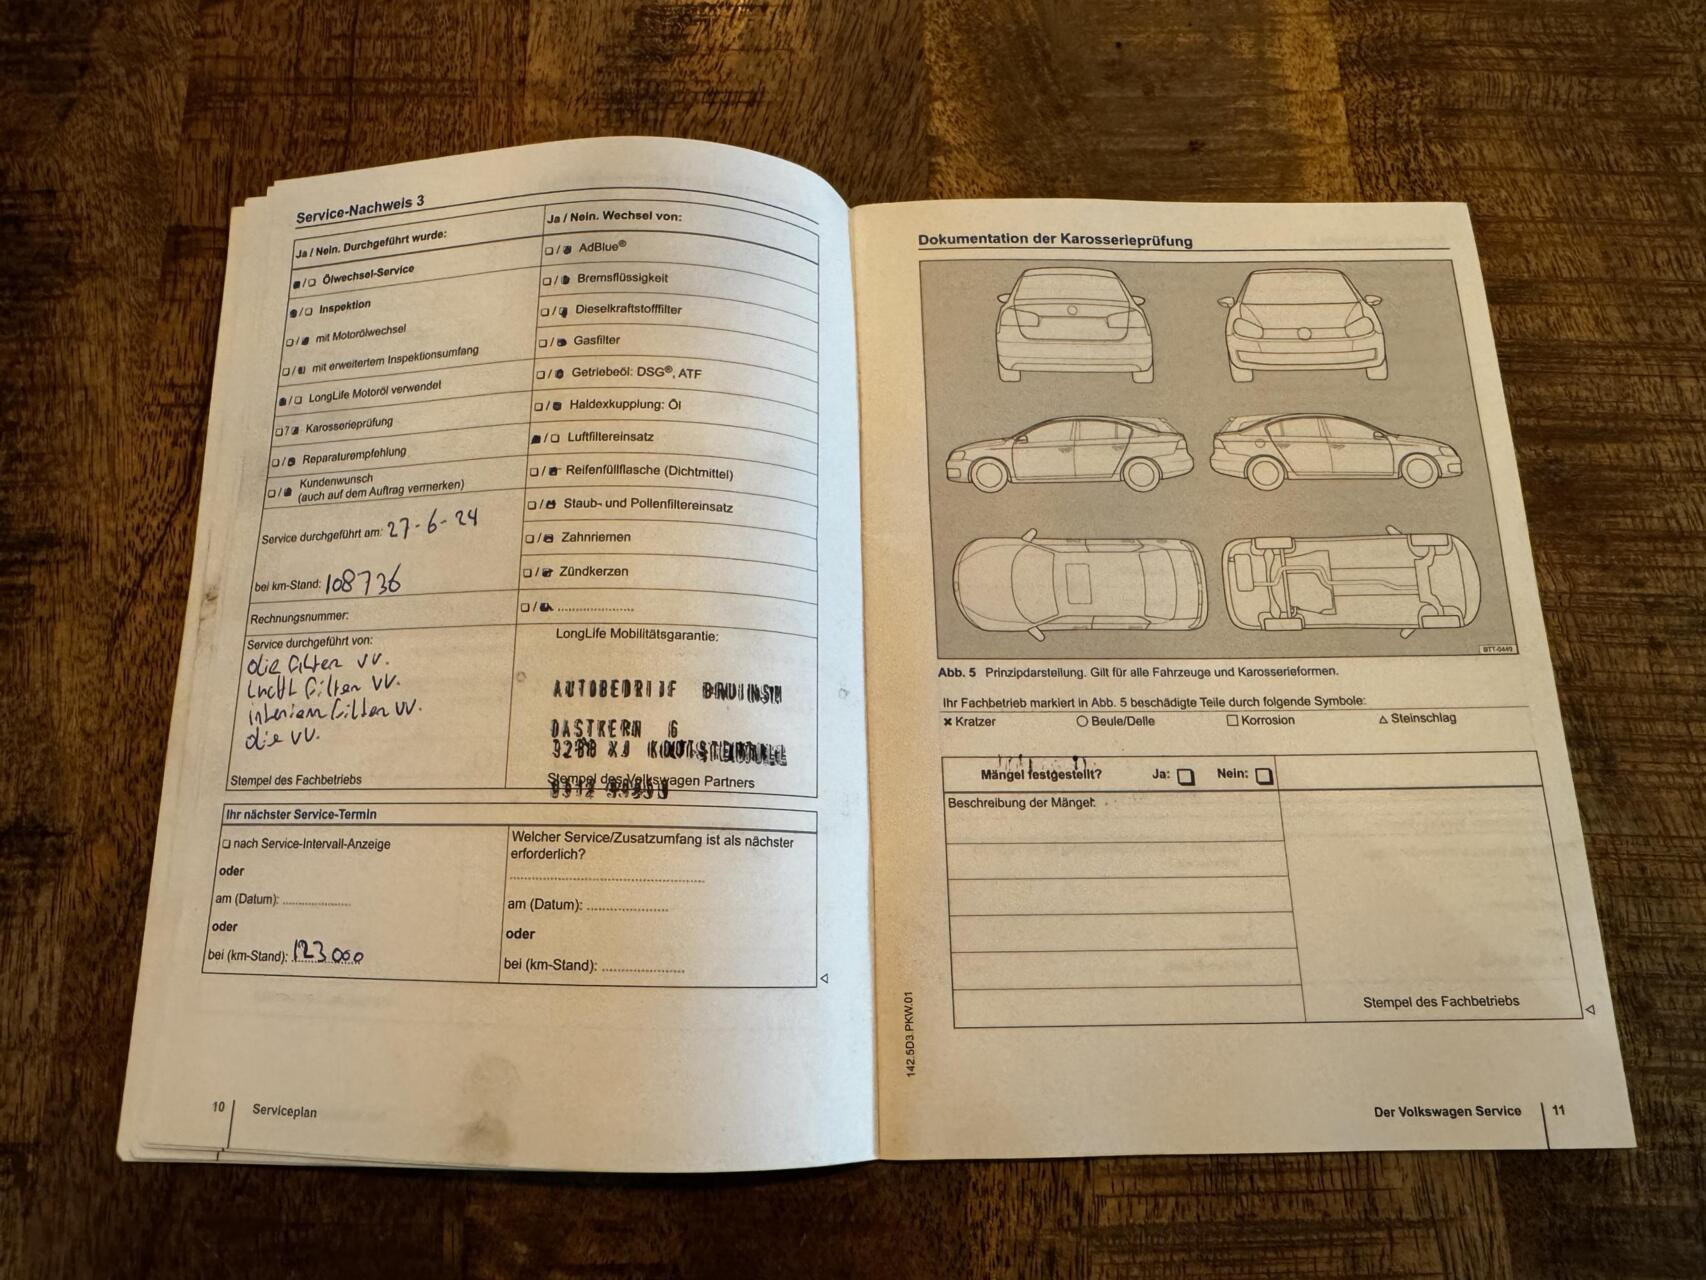 Service-Nachweis 3
Ja / Nein. Durchgeführt wurde:
Ölwechsel-Service
Inspektion
mit Motorölwechsel
mit erweitertem Inspektionsumfang
LongLife Motoröl verwendet
Karosserieprüfung
Reparaturempfehlung
Kundenwunsch
(auch auf dem Auftrag vermerken)
Service durchgeführt am: 27-6-24
bei km-Stand: 108736
Rechnungsnummer:
Service durchgeführt von:
olie filter vv.
lucht filter vv.
interieur filter vv.
olie vv.
Stempel des Fachbetriebs
Ja / Nein. Wechsel von:
AdBlue®
Bremsflüssigkeit
Dieselkraftstofffilter
Gasfilter
Getriebeöl: DSG®, ATF
Haldexkupplung: Öl
Luftfiltereinsatz
Reifenfüllflasche (Dichtmittel)
Staub- und Pollenfiltereinsatz
Zahnriemen
Zündkerzen
LongLife Mobilitätsgarantie:
AUTOBEDRIJF
6
Stempel des Volkswagen Partners
Ihr nächster Service-Termin
nach Service-Intervall-Anzeige
oder
am (Datum):
oder
bei (km-Stand): 123000
Welcher Service/Zusatzumfang ist als nächster
erforderlich?
am (Datum):
oder
bei (km-Stand):
10 Serviceplan
Dokumentation der Karosserieprüfung
BTT-0449
Abb. 5 Prinzipdarstellung. Gilt für alle Fahrzeuge und Karosserieformen.
Ihr Fachbetrieb markiert in Abb. 5 beschädigte Teile durch folgende Symbole:
Kratzer Beule/Delle Korrosion Steinschlag
Mängel festgestellt? Ja: Nein:
Beschreibung der Mängel:
Stempel des Fachbetriebs
142.5D3.PKW.01
Der Volkswagen Service 11